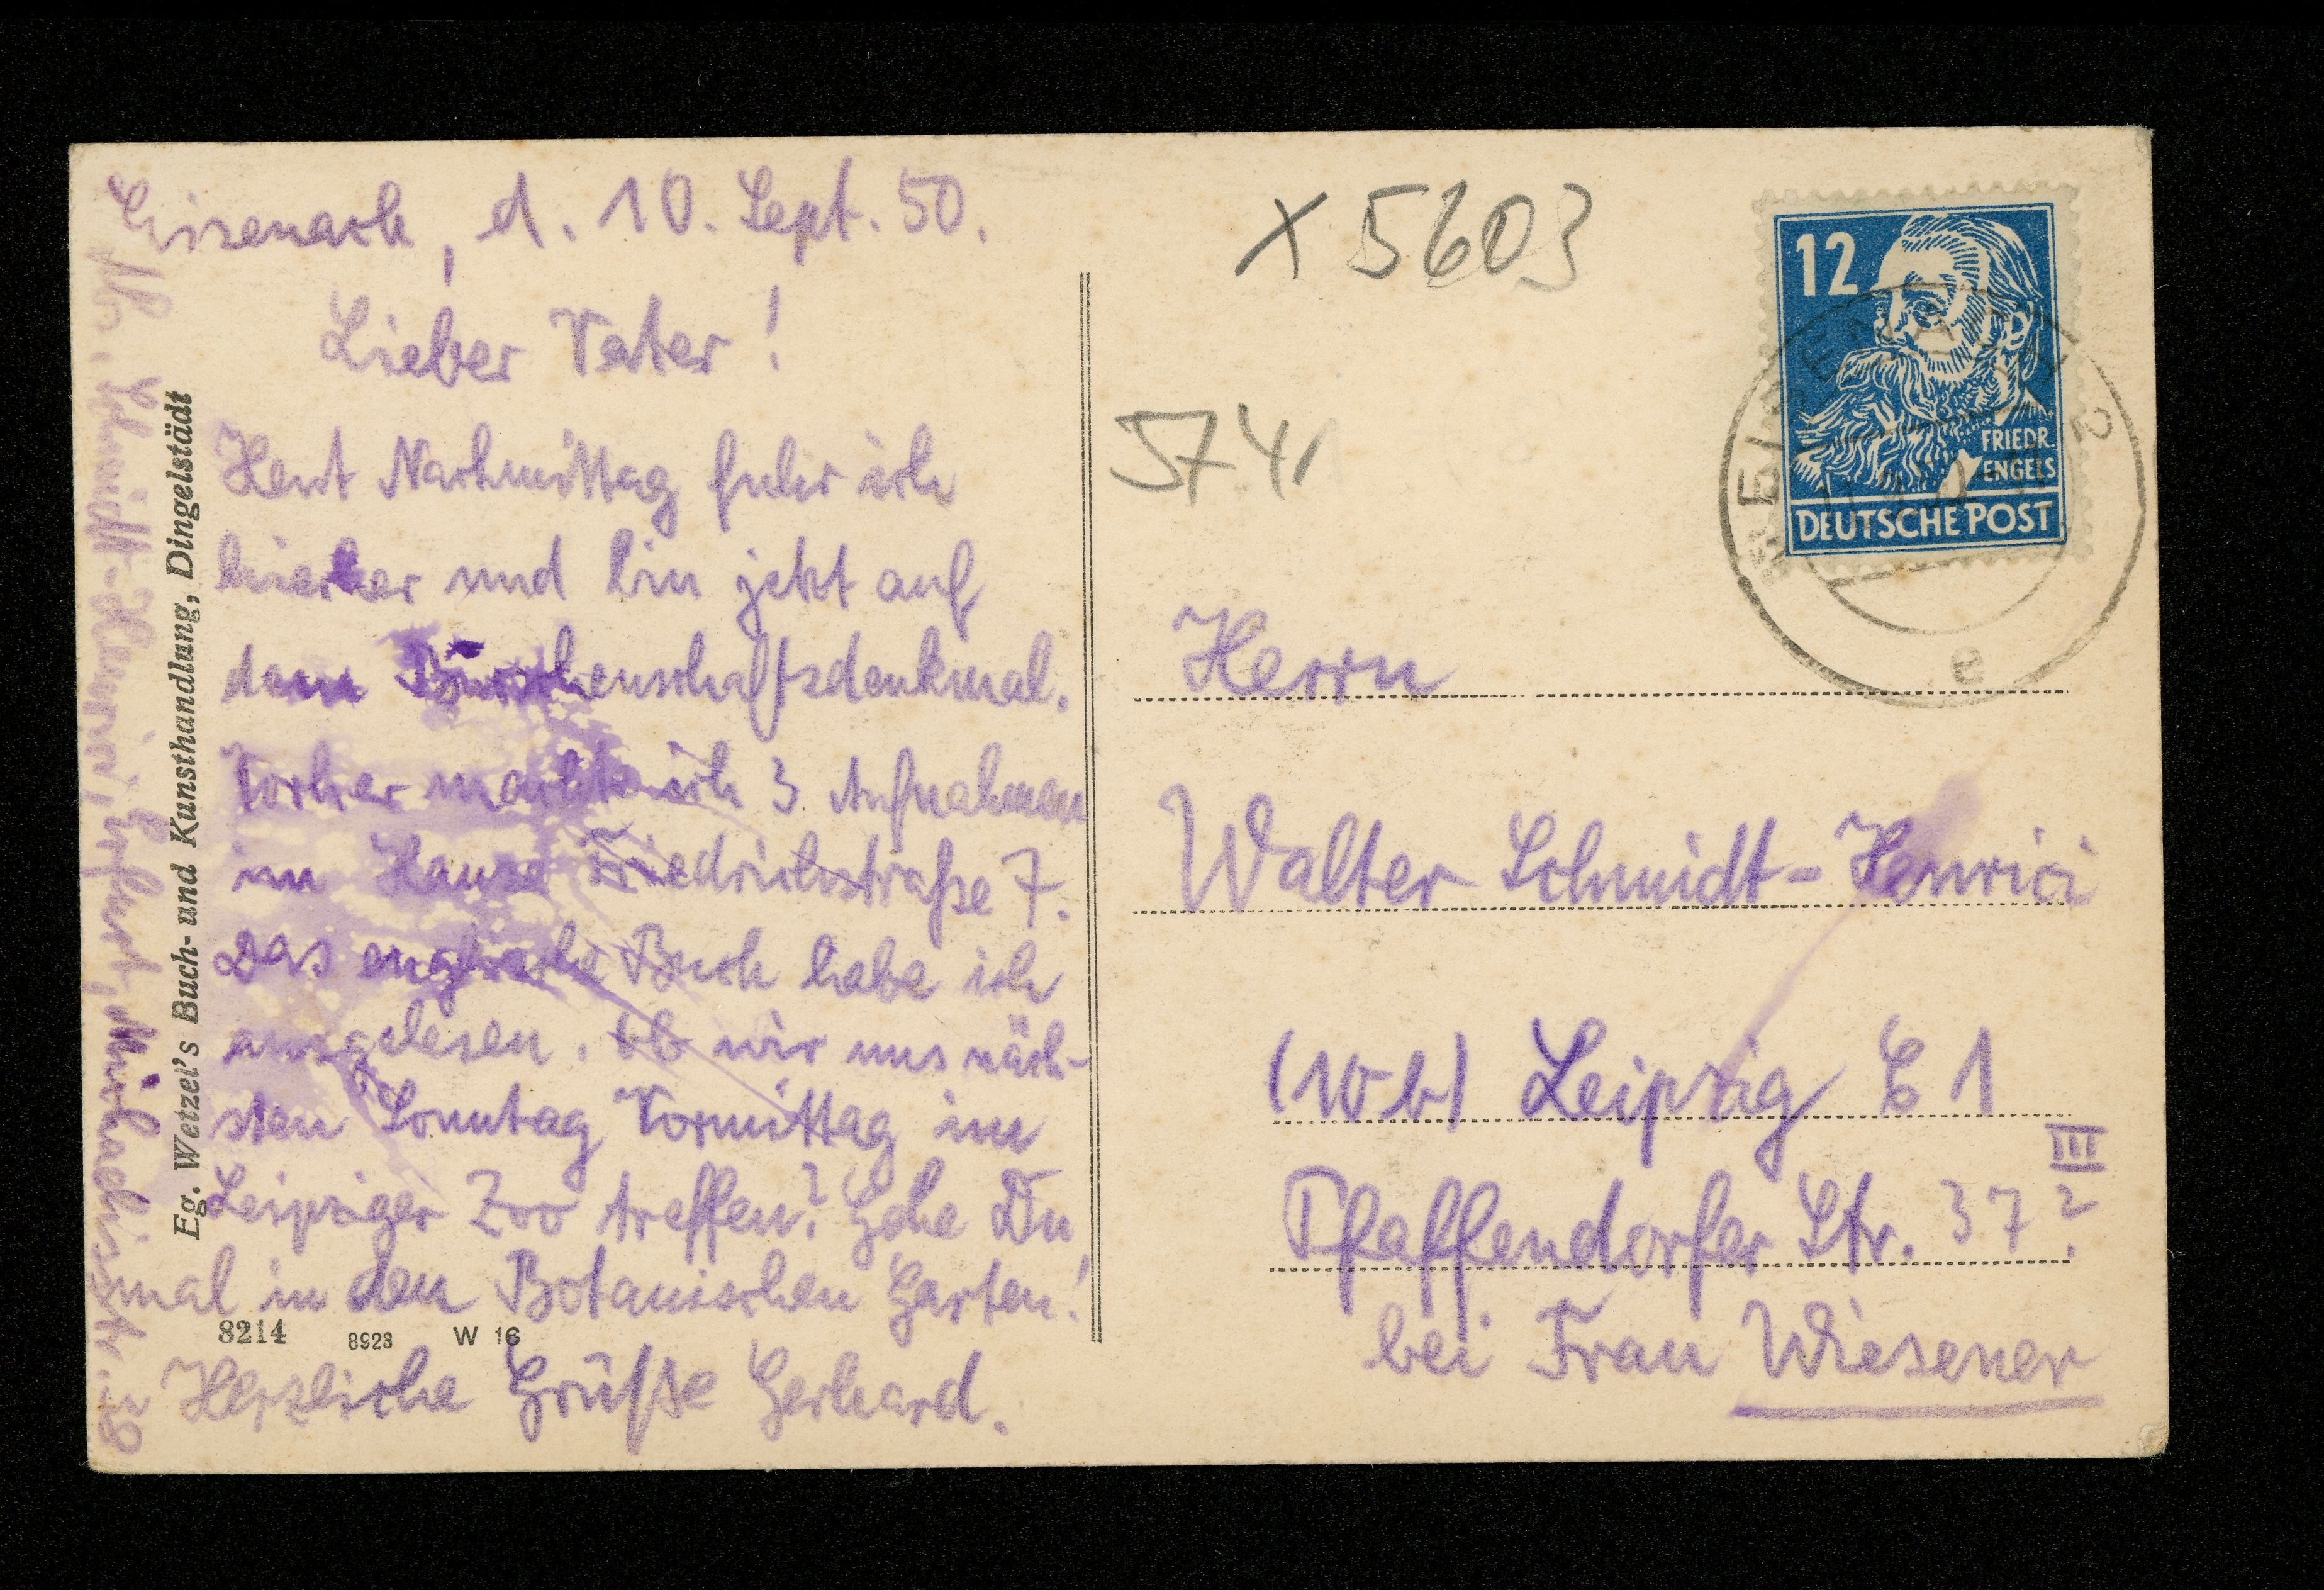 Eisenach, d. 10. Sept. 50.
Lieber Vater!
Heut Nachmittag fuhr ich
hierher und bin jetzt auf
dem Burschenschaftsdenkmal.
Vorher machte ich 3 Aufnahmen
im Hause Friedrichstraße 7.
Das englische Buch habe ich
ausgelesen. Ob wir uns näch-
sten Sonntag Vormittag im
Leipziger Zoo treffen? Gehe Du
mal in den Botanischen Garten!
Herzliche Grüße Gerhard.
8214 8923 W 16
Schmidt-Henrici, Erfurt,
Eg. Wetzel's Buch- und Kunsthandlung, Dingelstädt
X 5603
5741
12
FRIEDR.
ENGELS
DEUTSCHE POST
2
e
Herrn
Walter Schmidt-Henrici
(10b) Leipzig C 1
Pfaffendorfer Str. 37 III
bei Frau Wiesener